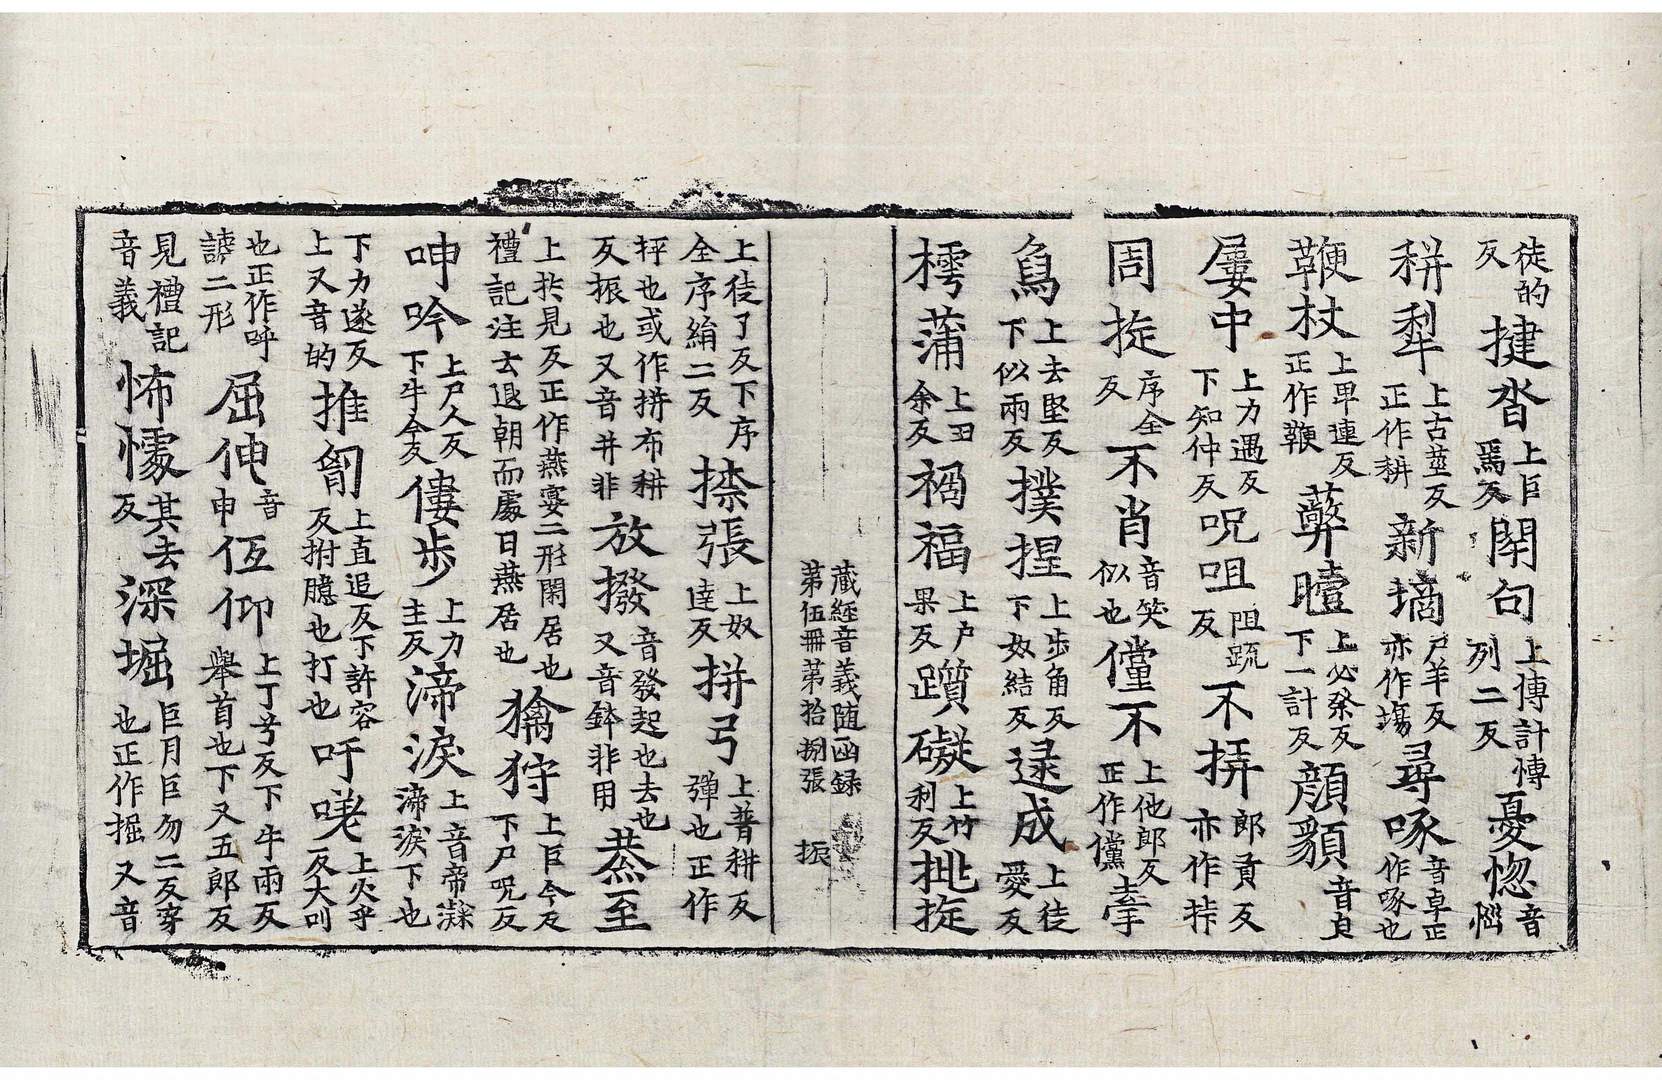 徒的反揵沓上巨焉反閇句上博計愽列二反憂惚音惱
耕犁上古莖反正作耕新墒尸羊反亦作塲尋啄音卓正作啄也
鞭杖上卑連反正作鞭躃曀上必癸反下一計反顔䫉音皃
屢中上力遇反下知仲反呪咀阻䟽反不挵郎貢反亦作挊
周㨁序全反不肖音笑似也儅不上他郎反正作儻牽
㲋上去堅反下似兩反撲揑上步角反下奴結反逯成上徒愛反
樗蒲上丑余反禍福上户果反躓礙上竹利反挑㨁
藏經音義随函録第伍冊第拾捌張 振
上徒了反下序全序絹二反㯲張上奴達反拼弓上普耕反彈也正作
抨也或作拼布耕反振也又音并非放撥音發起也去也又音鉢非用蒸至
上扵見反正作燕宴二形閑居也禮記注去退朝而處曰燕居也擒狩上巨今反下尸呪反
呻吟上尸人反下牛今反僂步上力主反渧淚上音帝㵕渧淚下也
下力遂反上又音的推㔨上直追反下許容反拊臆也打也吁嗟上火乎反大叫
也正作呼謼二形屈伸音申仾仰上丁兮反下牛兩反舉首也下又五郎反
見禮記音義怖懅其去反深堀巨月巨勿二反穿也正作掘又音